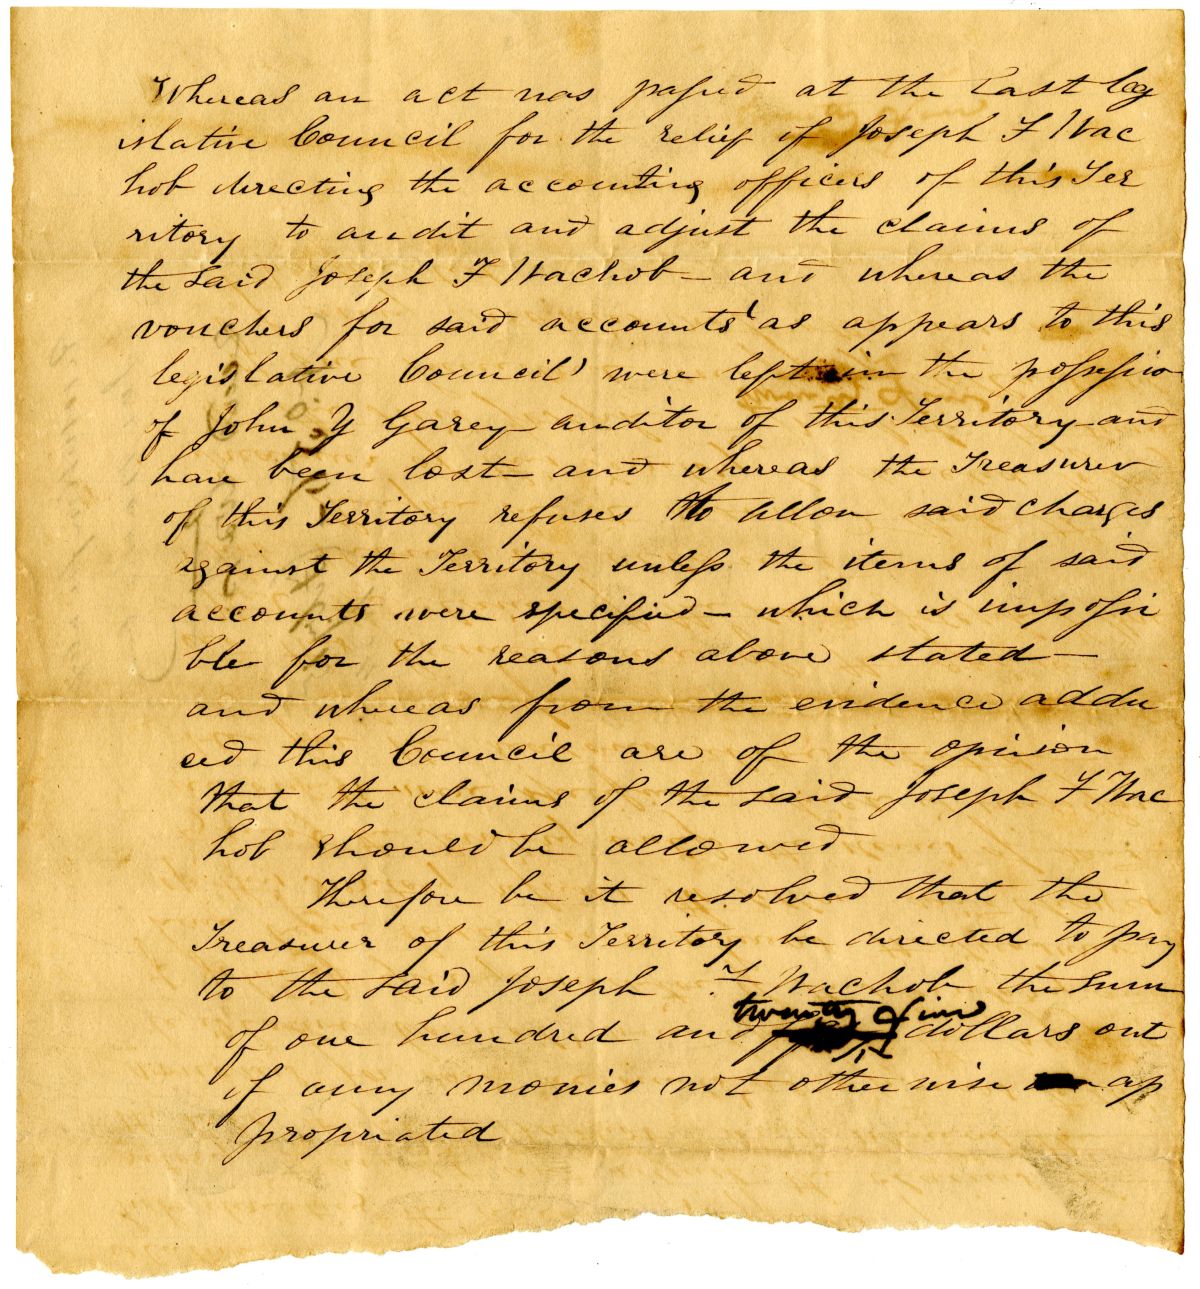 Whereas an act was passed at the Last leg
islative Council for the relief of Joseph F Wac
hob directing the accounting officers of this Ter
ritory to audit and adjust the claims of
the said Joseph F Wachob - and whereas the
vouchers for said accounts as appears to this
legislative Council were left in the possession
of John Y Garey - auditor of this Territory - and
have been lost - and whereas the Treasurer
of this Territory refuses to allow said charges
against the Territory unless the items of said
accounts were specified - which is impossi
ble for the reasons above stated -
and whereas from the evidence addu
ced this Council are of the opinion
that the claims of the said Joseph F Wac
hob should be allowed
Therefore be it resolved that the
Treasurer of this Territory be directed to pay
to the said Joseph F Wachob the sum
twenty five
of one hundred and dollars out
of any monies not otherwise ap
propriated